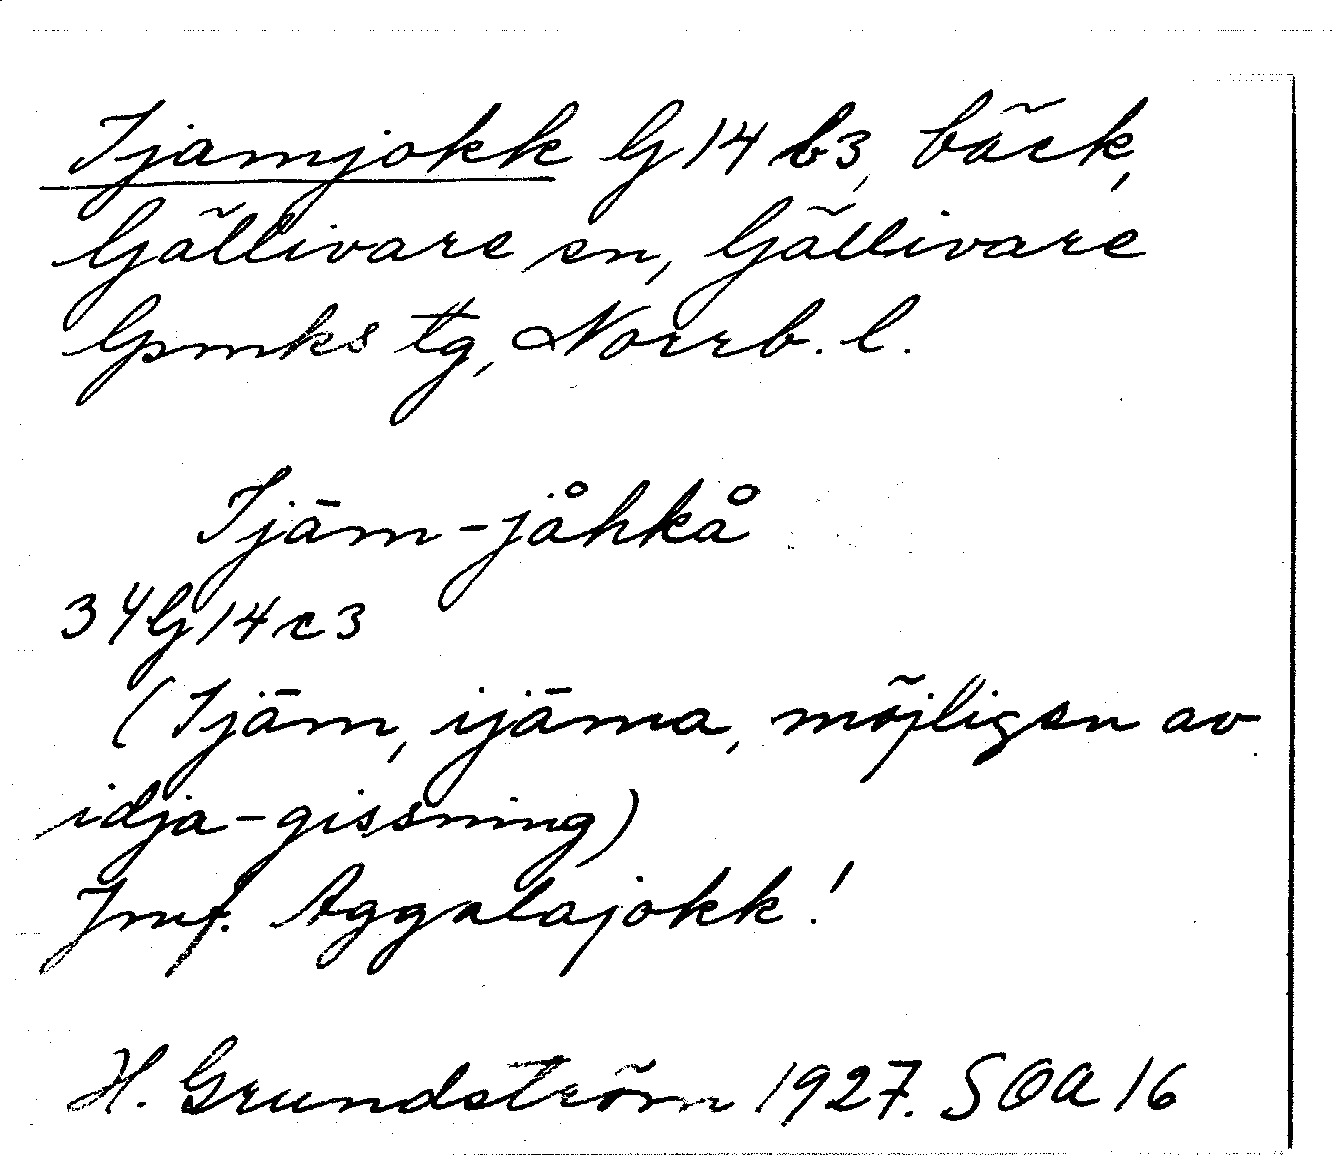 Ijamjokk G 14 b3, bäck,
Gällivare sn, Gällivare
lpmks tg, Norrb. l.
Ijām-jåhkå
34 G 14 c 3
(Ijām, ijāma, möjligen av
idja - gissning)
Jmf. Aggalajokk!
H. Grundström 1927. SOA 16